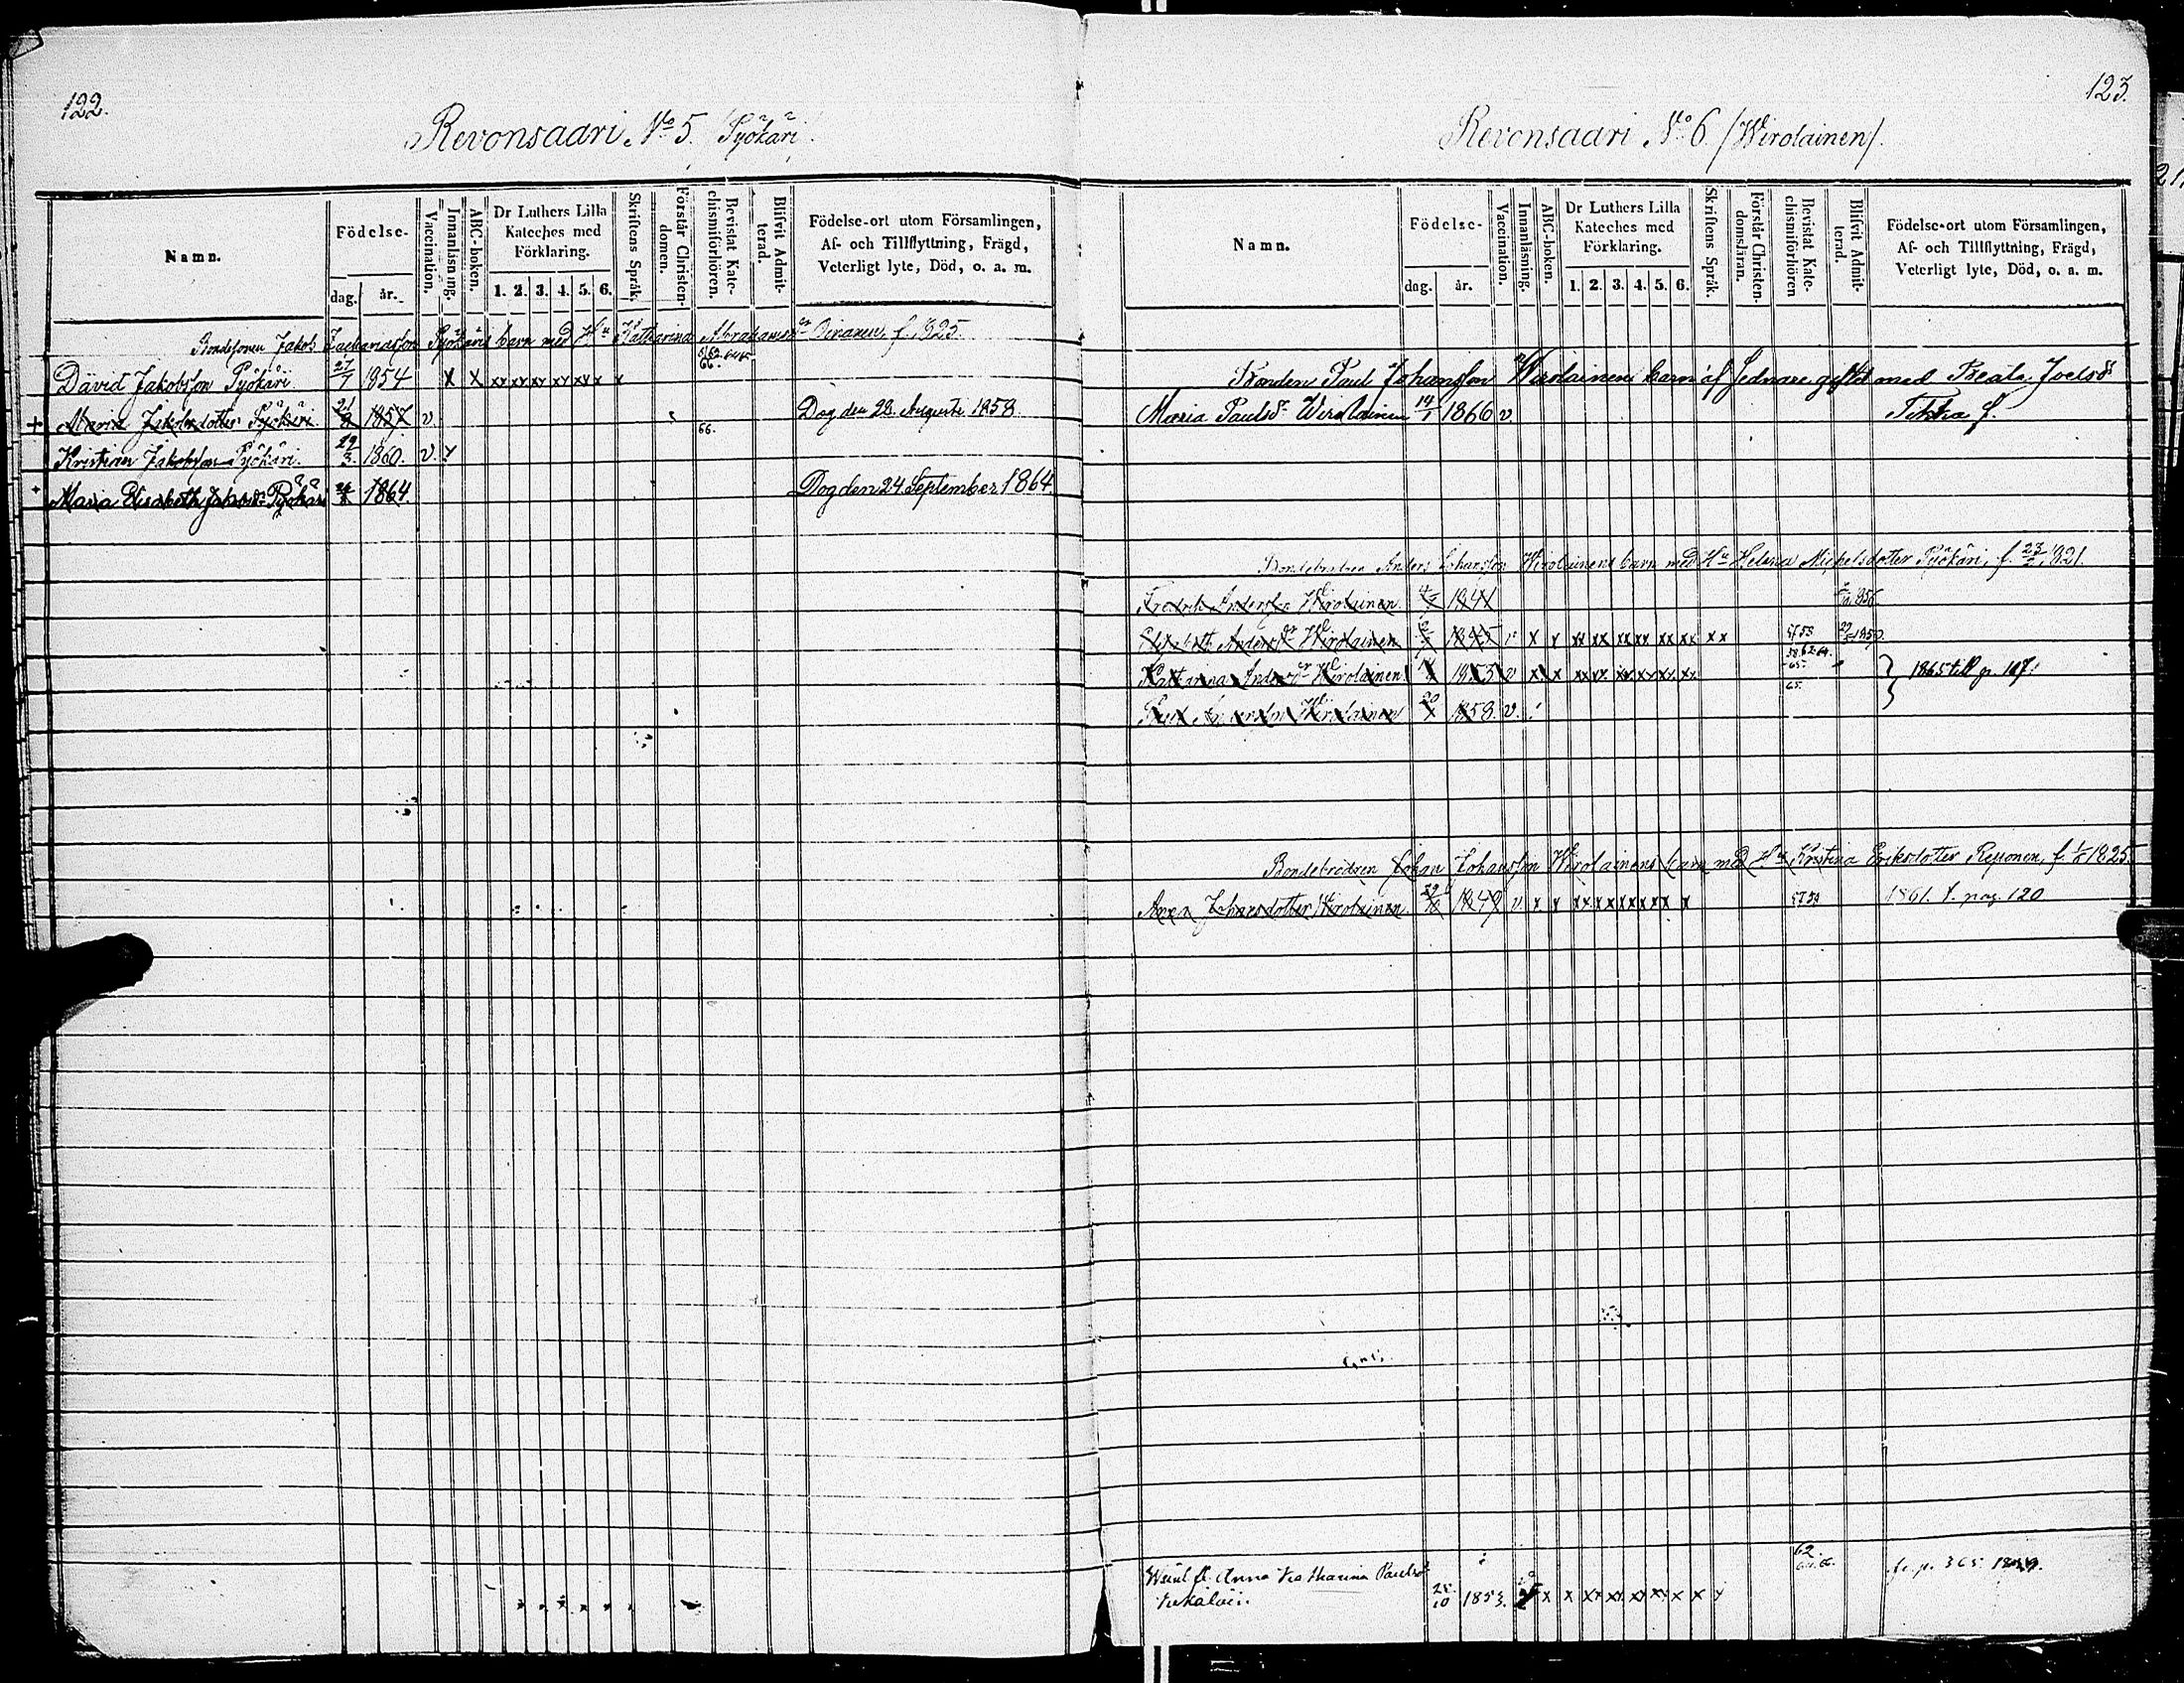 122.
Revonsaari № 5. Pyökäri.
Namn.
Födelse-
dag.
år.
Vaccination.
Innanläsning.
ABC-boken.
Dr Luthers Lilla Kateches med Förklaring.
1. 2. 3. 4. 5. 6.
Skriftens Språk.
Förstår Christendomen.
Bevistat Katechismiförhören.
Blifvit Admitterad.
Födelse-ort utom Församlingen,
Af- och Tillflyttning, Frägd,
Veterligt lyte, Död, o. a. m.
Bondesonen Jakob Zachariasson Pyökäris barn med Hu Katharina Abrahamsdr f. 1825.
David Jakobsson Pyökäri 27/7 1854 x x xx xx xx xx xx x x 66.
+ Maria Jakobsdotter Pyökäri 21/8 1857 v. Dog den 28. Augusti 1858.
Kristian Jakobsson Pyökäri. 29/3. 1860. v. x 66.
+ Maria Elisabeth Jakobsdr Pyökäri 1864. Dog den 24 September 1864.
123.
Revonsaari № 6. /Wirolainen/.
Namn.
Födelse-
dag.
år.
Vaccination.
Innanläsning.
ABC-boken.
Dr Luthers Lilla Kateches med Förklaring.
1. 2. 3. 4. 5. 6.
Skriftens Språk.
Förstår Christendomsläran.
Bevistat Katechismiförhören
Blifvit Admitterad.
Födelse-ort utom Församlingen,
Af- och Tillflyttning, Frägd,
Veterligt lyte, Död, o. a. m.
Bonden Paul Johansson Wirolainens barn af sednare giftet med Beata Joelsdr
Maria Paulsdr Wirolainen 14/1 1866 v. Tikka f.
Bondebrodren Anders Johansson Wirolainens barn med Hu Helena Michelsdotter Pyökäri, f. 1821.
Fredrik Andersson Wirolainen. 1841 1856.
Elisabeth Andersdr Wirolainen 1845 v x x xx xx xx xx xx x x 57 58 1859.
Katarina Andersdr Wirolainen 1853 v x x xx xx xx xx xx 65. } 1865 till p. 107.
Paul Andersson Wirolainen 20 1858. v. 65.
Bondebrodren Johan Johansson Wirolainens barn med Hu Kristina Eriksdotter Reponen, f. 1825.
Anna Johansdotter Wirolainen. 29/10 1849 v x x xx xx xx xx x x 57 58 1861. t. pag. 120
Anna Katharina Paulsd 25/10 1853. x x xx xx xx xx x x 62 fr. p. 365